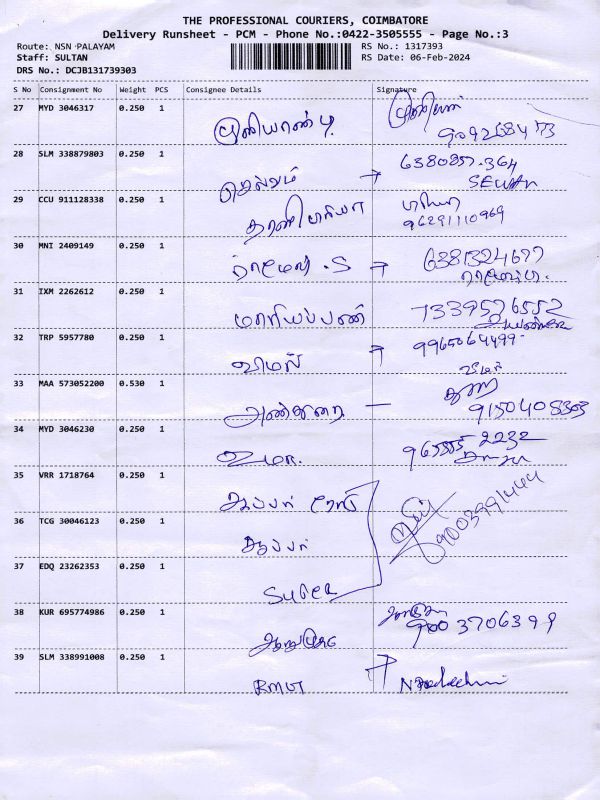 THE PROFESSIONAL COURIERS, COIMBATORE
Delivery Runsheet - PCM - Phone No.:0422-3505555 - Page No.:3
Route: NSN PALAYAM
RS No.: 1317393
Staff: SULTAN
RS Date: 06-Feb-2024
DRS No.: DCJB131739303
S No Consignment No Weight PCS Consignee Details Signature
27 MYD 3046317 0.250 1 முனியாண்டி
28 SLM 338879803 0.250 1 செல்வம் → 6380857364
29 CCU 911128338 0.250 1 தாரணி பிரியா பிரியா
96291110969
30 MNI 2409149 0.250 1 → 6381324677
31 IXM 2262612 0.250 1 மாரியப்பன் 7339576552
32 TRP 5957780 0.250 1 விமல் → 9965064499
விமல்
33 MAA 573052200 0.530 1 அண்துரை — 9150408303
34 MYD 3046230 0.250 1 உமா.
35 VRR 1718764 0.250 1 9003991444
36 TCG 30046123 0.250 1
37 EDQ 23262353 0.250 1 Super
38 KUR 695774986 0.250 1 ஆறுமுகம் 9003706399
39 SLM 338991008 0.250 1 RMVT